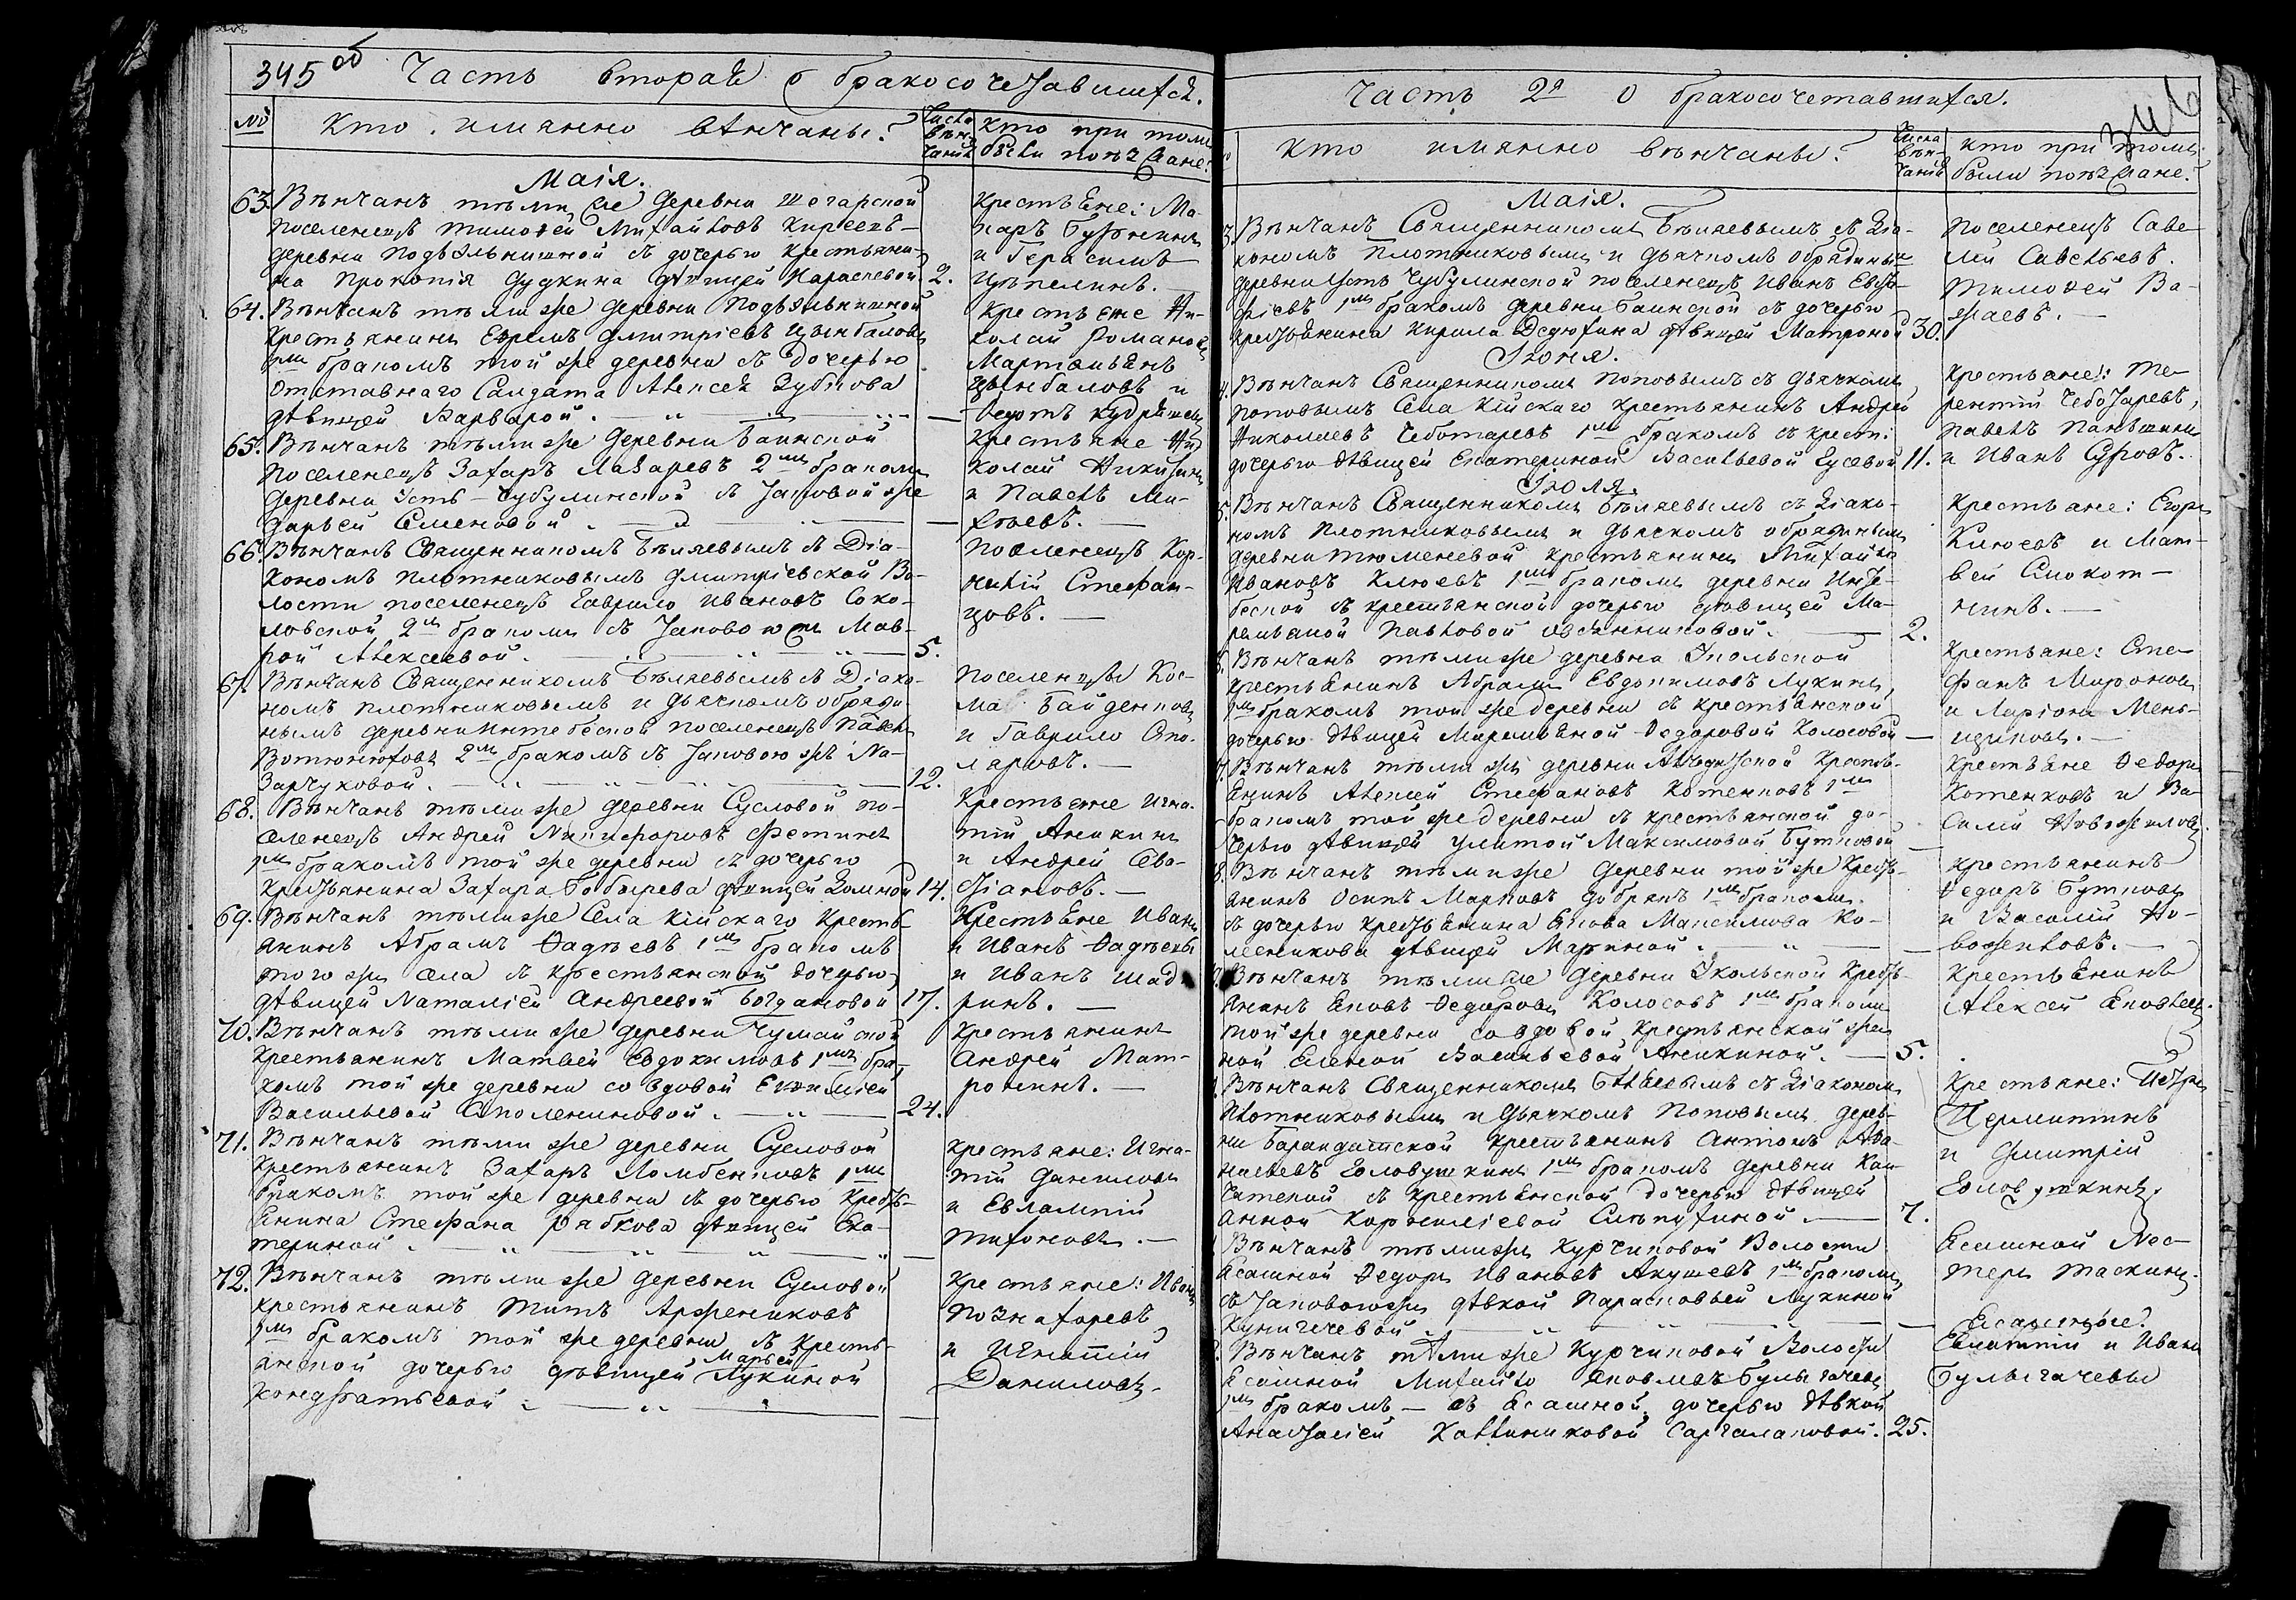 345 об Часть вторая о бракосочетавшихся.
№
Кто имянно вѣнчаны?
Число вѣн-
чанія
Кто при томъ
были поѣзжане?
Маія.
63. Вѣнчанъ тѣми же деревни
поселенецъ Тимофей Михайловъ Киреевъ
деревни Подъѣльнишной съ дочерью крестьяни-
на Прокопія Дудкина дѣвицей Параскевой. 2.
Крестьяне: Ма-
каръ
и Герасимъ
Цѣпелинъ.
64. Вѣнчанъ тѣми же деревни Подъѣльнишной
крестьянинъ Ефремъ Дмитріевъ Цынбаловъ
1мъ бракомъ той же деревни съ дочерью
отставнаго Салдата Алексея Зубкова
дѣвицей Варварой.
Крестьяне Ни-
колай Романовъ
Мартемьянъ
Цынбаловъ и
Федотъ
65. Вѣнчанъ тѣми же деревни Баинской
поселенецъ Захаръ Лазаревъ 2мъ бракомъ
деревни Усть-Чубулинской съ таковой же
Дарьей Семеновой.
Крестьяне Ни-
колай Никитинъ
и Павелъ Ми-
хѣевъ.
66. Вѣнчанъ Священникомъ Бѣляевымъ съ Діа-
кономъ Плотниковымъ Дмитріевской Во-
лости поселенецъ Гаврило Ивановъ Соко-
ловской 2мъ бракомъ съ таковою же Мав-
рой Алексеевой. 5.
Поселенецъ Кор-
нилій Стефан-
цовъ.
67. Вѣнчанъ Священникомъ Бѣляевымъ съ Діако-
номъ Плотниковымъ и дьячкомъ Обряди-
нымъ деревни Интебеской поселенецъ Павелъ
2мъ бракомъ съ таковою же На-
12.
Поселенцы Кос-
ма Байденковъ
и Гаврило Сто-
ляровъ.
68. Вѣнчанъ тѣми же деревни Сусловой по-
селенецъ Андрей Никифоровъ Фетинъ
1мъ бракомъ той же деревни съ дочерью
крестьянина Захара Бобырева дѣвицей Домной 14.
Крестьяне Игна-
тій Аникинъ
и Андрей Сева-
стіановъ.
69. Вѣнчанъ тѣми же Села Кійскаго кресть-
янинъ Абрамъ Фадѣевъ 1мъ бракомъ
того же села съ крестьянской дочерью
дѣвицей Наталіей Андреевой Богдановой 17.
Крестьяне Иванъ
и Иванъ Фадѣевы
и Иванъ Шад-
ринъ.
70. Вѣнчанъ тѣми же деревни Чумайской
крестьянинъ Матвей Евдокимовъ 1мъ бра-
комъ той же деревни со вдовой Евфиміей
Васильевой Аполенниковой. 24.
Крестьянинъ
Андрей Мат-
ронинъ.
71. Вѣнчанъ тѣми же деревни Сусловой
крестьянинъ Захаръ Ломбенковъ 1мъ
бракомъ той же деревни съ дочерью кресть-
янина Стефана Рябкова дѣвицей Ека-
териной.
Крестьяне: Игна-
тій Даниловъ
и Евлампій
Тихоновъ.
72. Вѣнчанъ тѣми же деревни Сусловой
крестьянинъ Титъ Арженниковъ
1мъ бракомъ той же деревни съ кресть-
янской дочерью дѣвицей Марьей Лукиной
Кондратьевой.
Крестьяне: Иванъ
Познахаревъ
и Игнатій
Даниловъ.
Часть 2я О бракосочетавшихся.
346
Кто имянно вѣнчаны?
Числа
вѣн-
чанія
Кто при томъ
были поѣзжане?
Маія.
3. Вѣнчанъ Священникомъ Бѣляевымъ съ Діа-
кономъ Плотниковымъ и дьячкомъ Обрядинымъ
деревни Усть Чубулинской поселенецъ Иванъ Евсѣ-
фіевъ 1мъ бракомъ деревни Баинской съ дочерью
крестьянина Кирила Дедюхина дѣвицей Матроной 30.
Поселенецъ Саве-
лій Савельевъ.
Тимофей Ва-
Іюня.
4. Вѣнчанъ Священникомъ Поповымъ съ дьячкомъ
Поповымъ Села Кійскаго крестьянинъ Андрей
Николаевъ Чеботаревъ 1мъ бракомъ съ крест:
дочерью дѣвицей Екатериной Васильевой Гусевой 11.
Крестьяне: Те-
рентій Чеботаревъ,
Павелъ Паньшинъ
и Иванъ Суровъ.
Іюля.
5. Вѣнчанъ Священникомъ Бѣляевымъ съ Діако-
номъ Плотниковымъ и дьячкомъ Обрядинымъ
деревни Тюменевой крестьянинъ Михайло
Ивановъ Клюевъ 1мъ бракомъ деревни Инте-
беской съ крестьянской дочерью дѣвицей Ма-
ремьяной Павловой Овсянниковой. 2.
Крестьяне: Егоръ
Клюевъ и Мат-
вей Смокот-
нинъ.
6. Вѣнчанъ тѣми же деревни Укольской
крестьянинъ Абрамъ Евдокимовъ Лукинъ,
1мъ бракомъ той же деревни съ крестьянской
дочерью дѣвицей Маремьяной Федоровой Колосовой
Крестьяне: Сте-
фанъ Мироновъ
и Ларіонъ Мень-
щиковъ.
7. Вѣнчанъ тѣми же деревни Алчедатской кресть-
янинъ Алексей Стефановъ Котенковъ 1мъ
бракомъ той же деревни съ крестьянской до-
черью дѣвицей Улитой Максимовой Бутковой
Крестьяне Федоръ
Котенковъ и Ва-
силій Новожиловъ.
8. Вѣнчанъ тѣми же деревни той же кресть-
янинъ Осипъ Марковъ Добрянъ 1мъ бракомъ.
съ дочерью крестьянина Якова Максимова Ко-
лесникова дѣвицей Мариной.
Крестьянинъ
Федоръ Бутковъ
и Василій Но-
вожиловъ.
9. Вѣнчанъ тѣми же деревни Укольской кресть-
янинъ Яковъ Федоровъ Колосовъ 1мъ бракомъ
той же деревни со вдовой крестьянской же-
ной Еленой Васильевой Аникиной. 5.
Крестьянинъ
Алексей Яковлевъ.
Вѣнчанъ Священникомъ Бѣляевымъ съ Діакономъ
Плотниковымъ и дьячкомъ Поповымъ дерев-
ни Барандатской крестьянинъ Антонъ Афа-
насьевъ Головушкинъ 1мъ бракомъ деревни Кай-
чатской съ крестьянской дочерью дѣвицей
Анной Корниліевой Слѣпухиной. 7.
Крестьяне: Петръ
Пермитинъ
и Дмитрій
Головушкинъ.
Вѣнчанъ тѣми же Курчиковой Волости
Ясашной Федоръ Ивановъ Акушевъ 1мъ бракомъ
съ таковою же дѣвкой Парасковьей Лукиной
Кунигечевой.
Ясашной Нес-
теръ Таскинъ.
Вѣнчанъ тѣми же Курчиковой Волости
Ясашной Михайло Яковлевъ Булыгачевъ
1мъ бракомъ — съ Ясашной дочерью дѣвкой
Анастасіей Сарчалаковой. 25.
Ясашные:
Евлампій и Иванъ
Булыгачевы